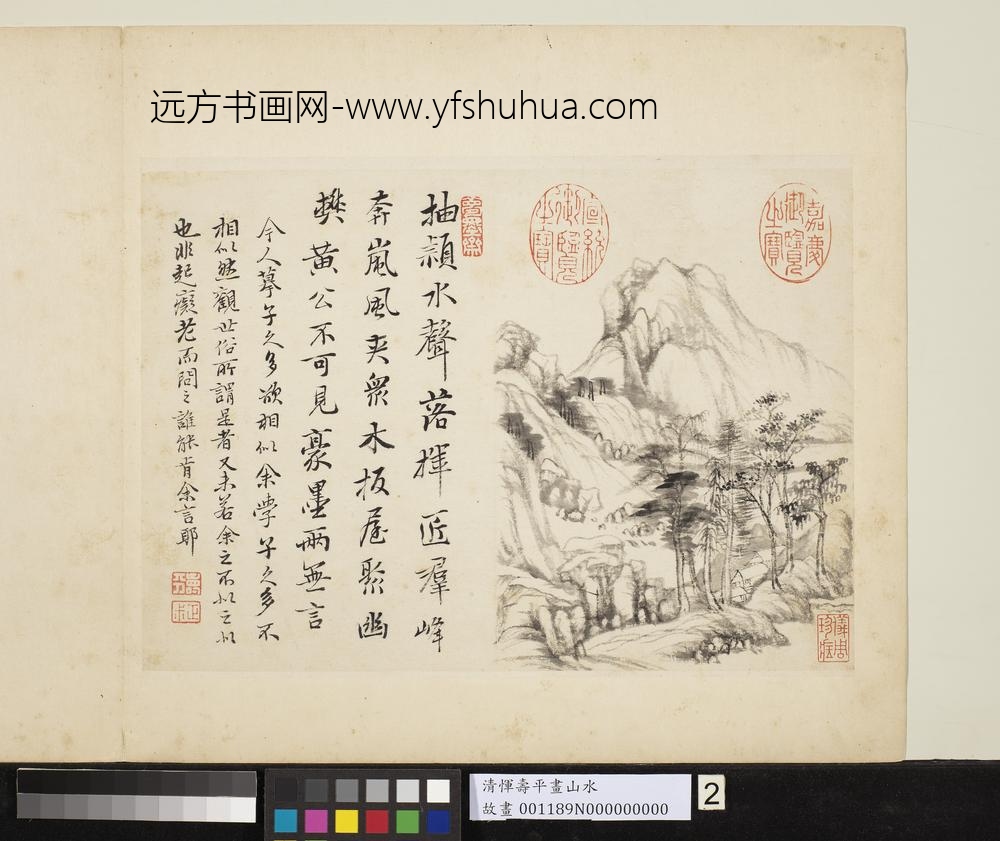 远方书画网-www.yfshuhua.com
嘉慶
御覽
之寶
宣統
御覽
之寶
抽穎水聲落揮匠羣峰
奔嵐風夾眾木板屋聚幽
黃公不可見豪墨兩無言
今人摹子久多欲相似余學子久多不
相似然觀世俗所謂是者又未若余之不似之似
也非起癡老而問之誰能肯余言耶
清惲壽平畫山水
故畫 001189N000000000
2